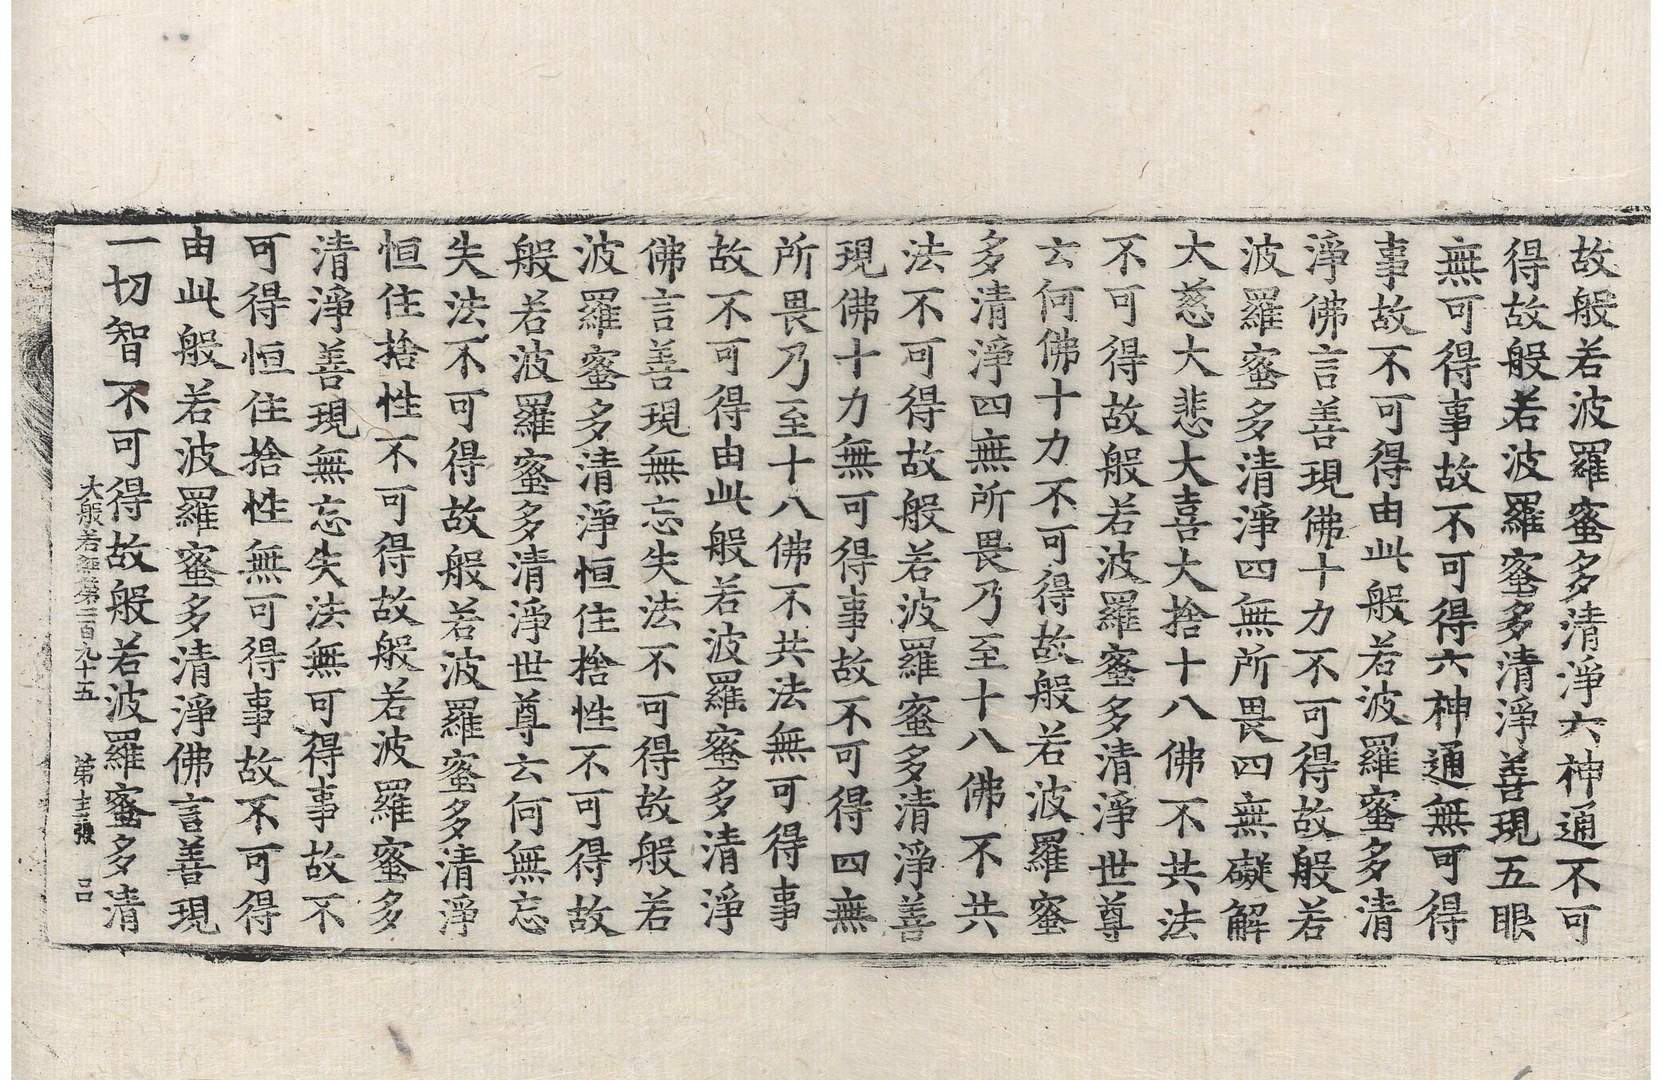 故般若波羅蜜多清淨六神通不可
得故般若波羅蜜多清淨善現五眼
無可得事故不可得六神通無可得
事故不可得由此般若波羅蜜多清
淨佛言善現佛十力不可得故般若
波羅蜜多清淨四無所畏四無礙解
大慈大悲大喜大捨十八佛不共法
不可得故般若波羅蜜多清淨世尊
云何佛十力不可得故般若波羅蜜
多清淨四無所畏乃至十八佛不共
法不可得故般若波羅蜜多清淨善
現佛十力無可得事故不可得四無
所畏乃至十八佛不共法無可得事
故不可得由此般若波羅蜜多清淨
佛言善現無忘失法不可得故般若
波羅蜜多清淨恒住捨性不可得故
般若波羅蜜多清淨世尊云何無忘
失法不可得故般若波羅蜜多清淨
恒住捨性不可得故般若波羅蜜多
清淨善現無忘失法無可得事故不
可得恒住捨性無可得事故不可得
由此般若波羅蜜多清淨佛言善現
一切智不可得故般若波羅蜜多清
大般若經第二百九十五 第十三張 呂